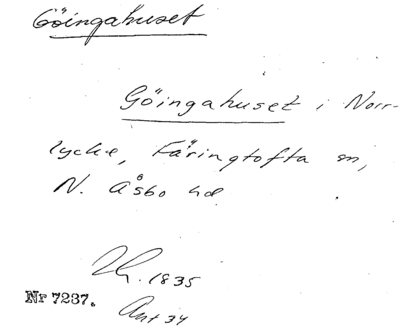 Göingahuset
Göingahuset i Norr-
lycke, Färingtofta sn,
N. Åsbo hd
1835
Nr 7237.
Ant 34